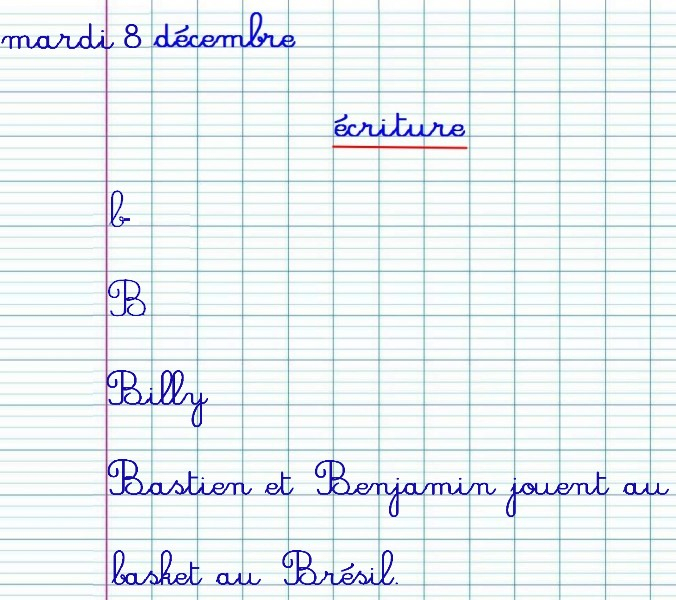 mardi 8 décembre
écriture
b
B
Billy
Bastien et Benjamin jouent au
basket au Brésil.